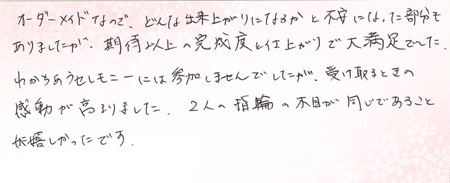 オーダーメイドなので、どんな出来上がりになるかと不安になった部分も
ありましたが、期待以上の完成度と仕上がりで大満足でした。
わかちあうセレモニーには参加しませんでしたが、受け取るときの
感動が高まりました。2人の指輪の木目が同じであること
が嬉しかったです。